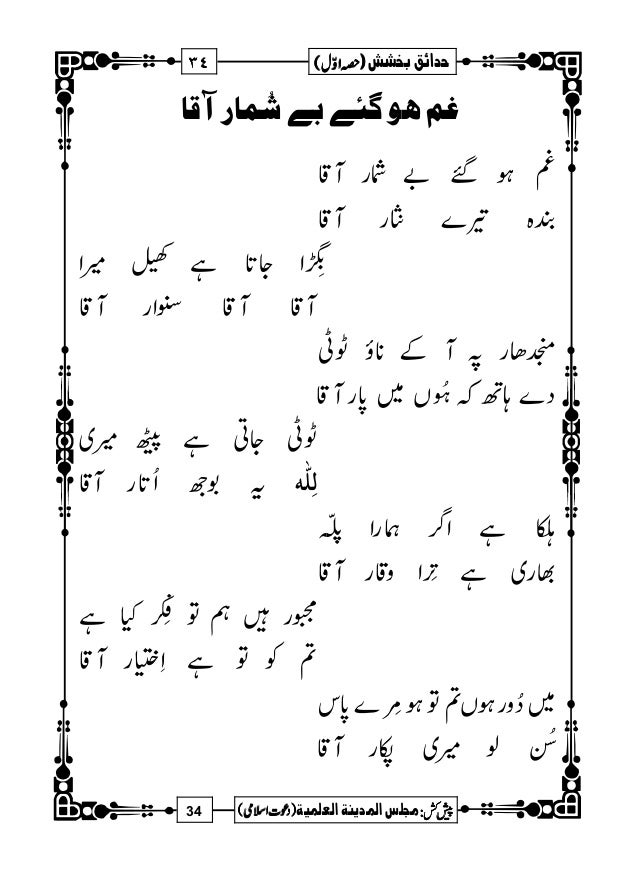 حدائق بخشش (حصہ اوّل)
٣٤
غم ہو گئے بے شُمار آقا
غم ہو گئے بے شمار آقا
بندہ تیرے نثار آقا
بِگڑا جاتا ہے کھیل میرا
آقا آقا سنوار آقا
منجدھار پہ آ کے ناؤ ٹوٹی
دے ہاتھ کہ ہُوں میں پار آقا
ٹوٹی جاتی ہے پیٹھ میری
لِلّٰہ یہ بوجھ اُتار آقا
ہلکا ہے اگر ہمارا پلّہ
بھاری ہے تِرا وقار آقا
مجبور ہیں ہم تو فِکر کیا ہے
تم کو تو ہے اِختیار آقا
میں دُور ہوں تم تو ہو مِرے پاس
سُن لو میری پکار آقا
پیش کش: مجلس المدینۃ العلمیۃ (دعوت اسلامی)
34